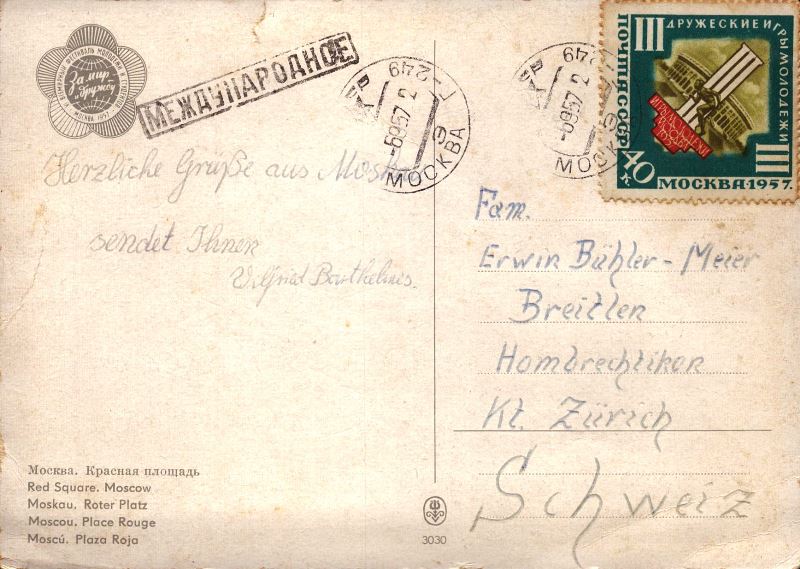 За мир и дружбу
МОСКВА 1957
МЕЖДУНАРОДНОЕ
Г-249
-6957 2
МОСКВА 9
249
-6957 2
МОСКВА 9
III ДРУЖЕСКИЕ ИГРЫ МОЛОДЕЖИ III
ПОЧТА СССР
40 к.
МОСКВА·1957.
Herzliche Grüße aus Moskau
sendet Ihnen
Wilfried Barthelmes.
Fam.
Erwin Bühler-Meier
Breitlen
Hombrechtikon
Kt. Zürich
Schweiz
Москва. Красная площадь
Red Square. Moscow
Moskau. Roter Platz
Moscou. Place Rouge
Moscú. Plaza Roja
3030